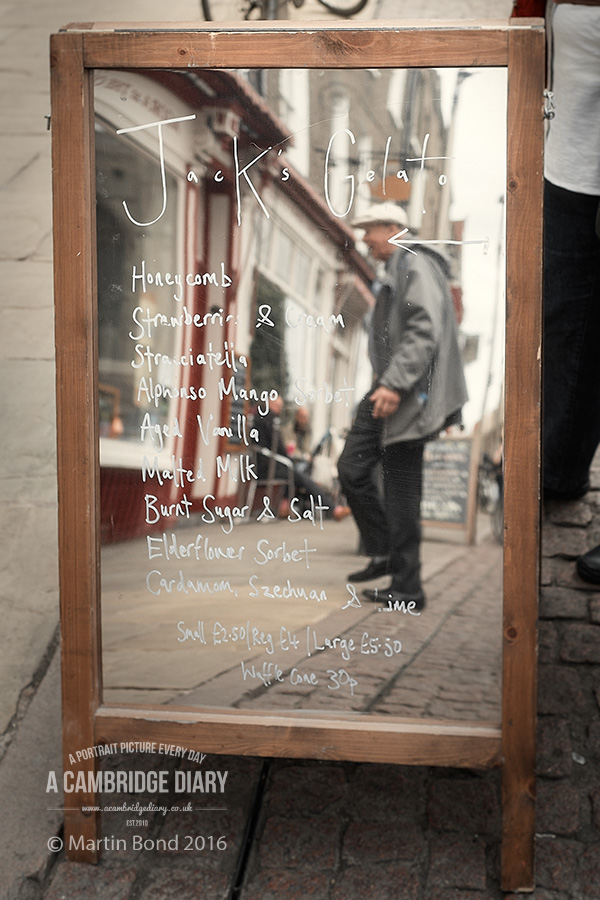 Jack's Gelato
Honeycomb
Strawberries & Cream
Stracciatella
Alphonso Mango Sorbet
Aged Vanilla
Malted Milk
Burnt Sugar & Salt
Elderflower Sorbet
Cardamom, Szechuan & Lime
Small £2.50/Reg £4 | Large £5.50
Waffle Cone 30p
A PORTRAIT PICTURE EVERY DAY
A CAMBRIDGE DIARY
www.acambridgediary.co.uk
EST.2010
© Martin Bond 2016